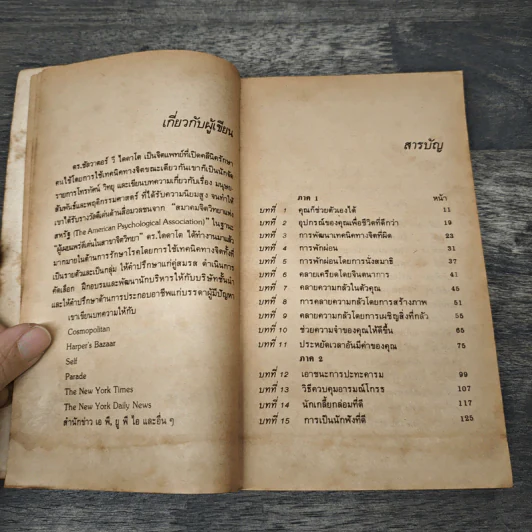 เกี่ยวกับผู้เขียน
ดร.ซัลวาตอร์ วี ไดดาโต เป็นจิตแพทย์ที่เปิดคลีนิครักษา
คนไข้โดยการใช้เทคนิคทางจิตขณะเดียวกันเขาก็เป็นนักจัด
รายการโทรทัศน์ วิทยุ และเขียนบทความเกี่ยวกับเรื่อง มนุษย-
สัมพันธ์และพฤติกรรมศาสตร์ ที่ได้รับความนิยมสูง จนทำให้
เขาได้รับรางวัลดีเด่นด้านสื่อมวลชนจาก "สมาคมจิตวิทยาแห่ง
สหรัฐ (The American Psychological Association)" ในฐานะ
"ผู้เผยแพร่ดีเด่นในสาขาจิตวิทยา" ดร.ไดดาโต ได้ทำงานมาแล้ว
มากมายในด้านการรักษาโรคโดยการใช้เทคนิคทางจิตทั้งที่
เป็นรายตัวและเป็นกลุ่ม ให้คำปรึกษาแก่คู่สมรส ดำเนินการ
คัดเลือก ฝึกอบรมและพัฒนานักบริหารให้กับบริษัทชั้นนำ
และให้คำปรึกษาด้านการประกอบอาชีพแก่บรรดาผู้มีปัญหา
เขาเขียนบทความให้กับ
Cosmopolitan
Harper's Bazaar
Self
Parade
The New York Times
The New York Daily News
สำนักข่าว เอ พี, ยู พี ไอ และอื่น ๆ
สารบัญ
ภาค 1 หน้า
บทที่ 1 คุณก็ช่วยตัวเองได้ 11
บทที่ 2 อุปกรณ์ของคุณเพื่อชีวิตที่ดีกว่า 19
บทที่ 3 การพัฒนาเทคนิคทางจิตที่ผิด 23
บทที่ 4 การพักผ่อน 31
บทที่ 5 การพักผ่อนโดยการนั่งสมาธิ 37
บทที่ 6 คลายเครียดโดยจินตนาการ 41
บทที่ 7 คลายความกลัวในตัวคุณ 45
บทที่ 8 การคลายความกลัวโดยการสร้างภาพ 51
บทที่ 9 คลายความกลัวโดยการเผชิญสิ่งที่กลัว 56
บทที่ 10 ช่วยความจำของคุณให้ดีขึ้น 65
บทที่ 11 ประหยัดเวลาอันมีค่าของคุณ 75
ภาค 2
บทที่ 12 เอาชนะการปะทะคารม 99
บทที่ 13 วิธีควบคุมอารมณ์โกรธ 107
บทที่ 14 นักเกลี้ยกล่อมที่ดี 117
บทที่ 15 การเป็นนักฟังที่ดี 125